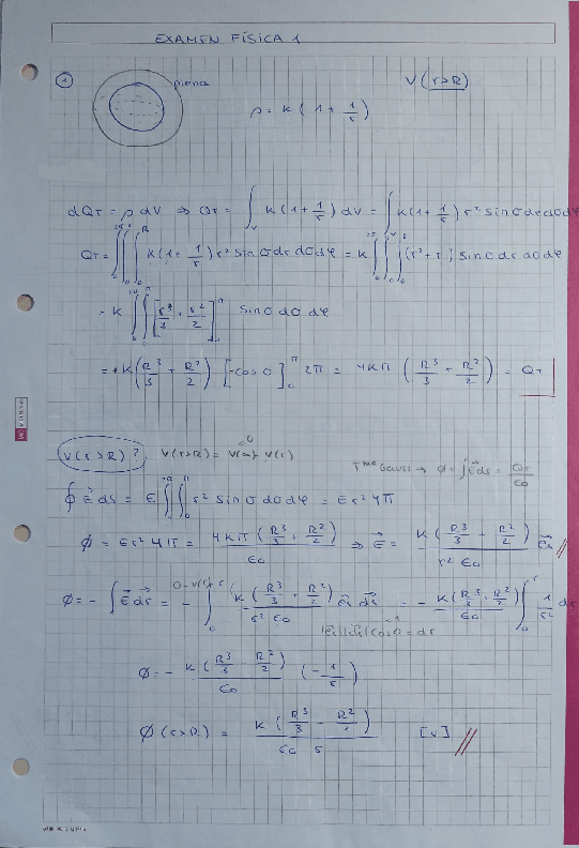 EXAMEN FÍSICA 1
① V(r>R)
ρ = k (1 + 1/r)
dQT = ρ dV ⇒ QT = ∫_V k(1+1/r) dV = ∫ k(1+1/r) r² sin θ dr dθ dφ
QT = ∫∫∫ k(1+1/r) r² sin θ dr dθ dφ = k ∫∫∫ (r²+r) sin θ dr dθ dφ
= k ∫∫ [r³/3 + r²/2] sin θ dθ dφ
= k (R³/3 + R²/2) [-cos θ]₀^π 2π = 4kπ (R³/3 + R²/2) = QT
V(r>R)? V(r>R) = V(∞) - V(r)
Tma Gauss → φ = ∫ E⃗ ds = QT/ε0
∮ E⃗ ds = E ∫∫ r² sin θ dθ dφ = E r² 4π
Φ = E r² 4π = 4kπ (R³/3 + R²/2) / ε0 ⇒ E⃗ = k (R³/3 + R²/2) / r² ε0
Ø = - ∫ E⃗ dr⃗ = - ∫ k (R³/3 + R²/2) / r² ε0 = - k (R³/3 + R²/2) / ε0 ∫ 1/r² dr
Ø = - k (R³/3 + R²/2) / ε0 (-1/r)
Ø (r>R) = k (R³/3 + R²/2) / ε0 r [V]